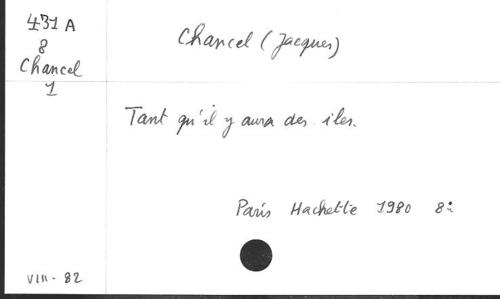 431 A
8
Chancel
1
Chancel (Jacques)
Tant qu'il y aura des iles.
Paris Hachette 1980 8:
VIII - 82